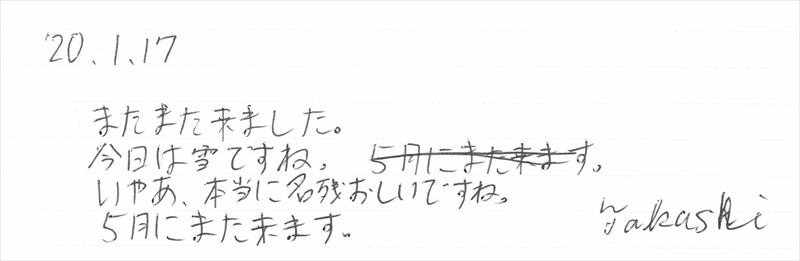 '20.1.17
またまた来ました。
今日は雪ですね。 5月にまた来ます。
いやあ、本当に名残おしいですね。
5月にまた来ます。
Takashi